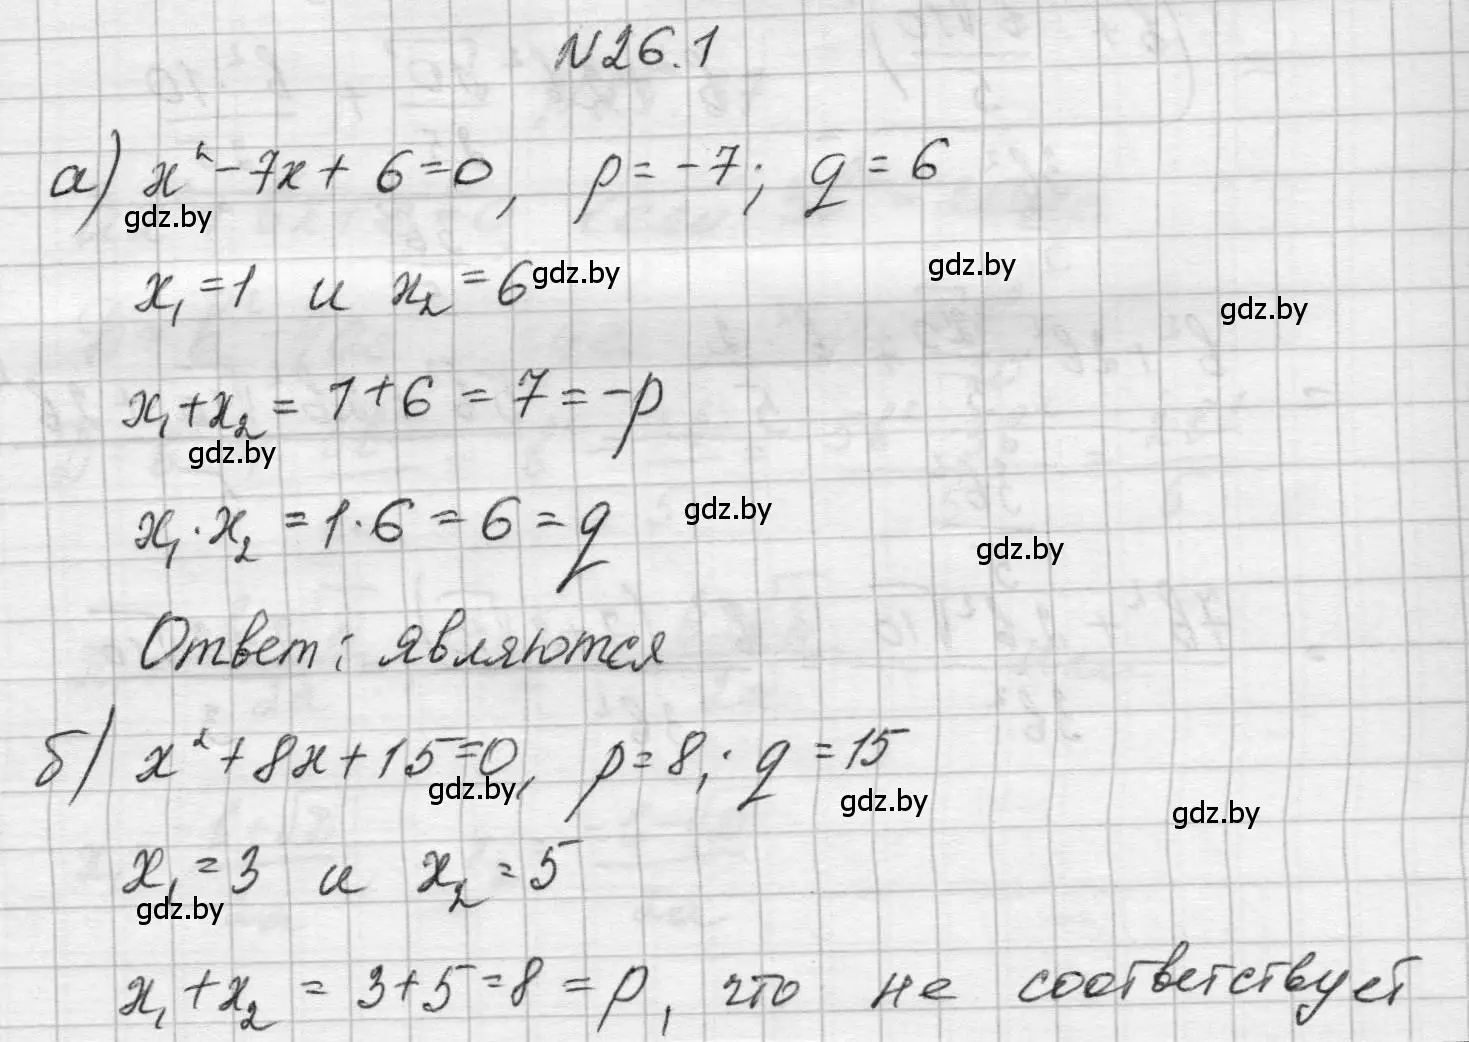 N26.1
а) x² - 7x + 6 = 0, p = -7; q = 6
gdz.by
x₁ = 1 и x₂ = 6 gdz.by gdz.by
gdz.by
x₁ + x₂ = 1 + 6 = 7 = -p
gdz.by
x₁ · x₂ = 1 · 6 = 6 = q gdz.by
gdz.by
Ответ: являются
б) x² + 8x + 15 = 0, p = 8; q = 15
gdz.by gdz.by gdz.by
x₁ = 3 и x₂ = 5
gdz.by
x₁ + x₂ = 3 + 5 = 8 = p, что не соответствует